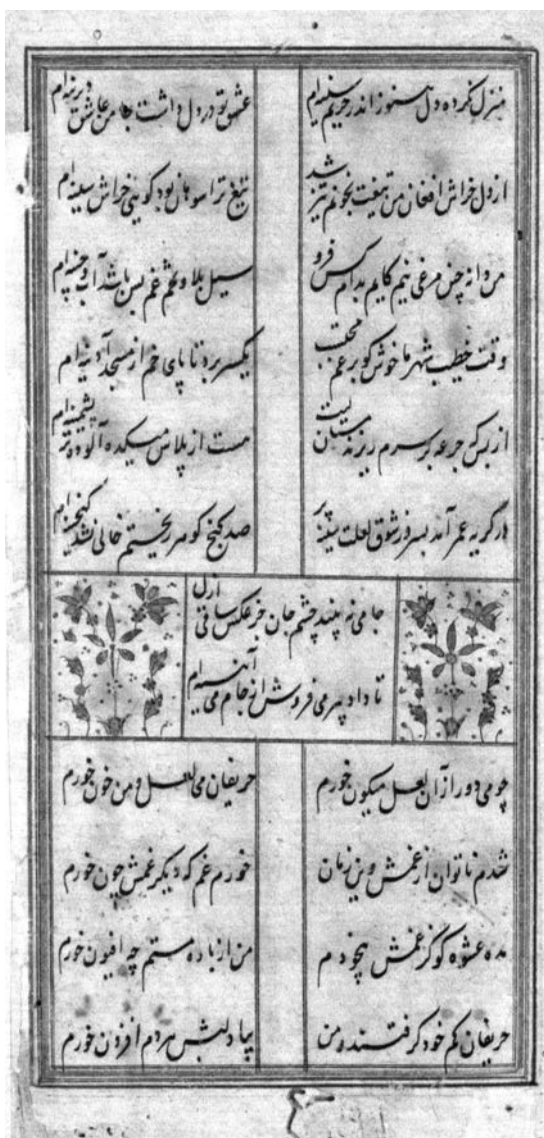 منزل نکرده دل هنوز اندر حریم سینه ام
عشق تو در دل داشت جا من عاشق دیرینه ام
از دل خراش افغان من تیغت بخونم تیز شد
تیغ ترا سوهان بود کویی خراش سینه ام
من دانه چین مرغی نیم کایم بدام کس فرو
سیل بلا و تخم غم بس باشد آب و چینه ام
وقت خطیب شهر ما خوش کو برغم محتسب
یکسر برد تا پای خم از مسجد آدینه ام
از بس که جرعه بر سرم ریزند مستان
هست از پلاس میکده آلوده تر پشمینه ام
در کریه عمر آمد بسر وز شوق لعلت سینه پر
صد کنج کوهر ریختم خالی نشد کنجینه ام
جامی نه بیند چشم جان جز عکس ساقی ازل
تا داد پیر می فروش از جام می آیینه ام
چو می دور از آن لعل میکون خورم
حریفان می لعل و من خون خورم
شدم ناتوان از غمش وین زمان
خورم غم که دیکر غمش چون خورم
مده عشوه کو کز غمش بیخودم
من از باده مستم چه افیون خورم
حریفان کم خود کرفتند و من
بیاد لبش هردم افزون خورم